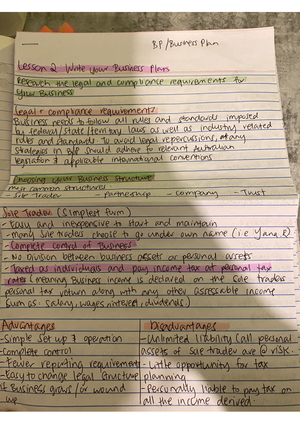 BP/Business Plan
Lesson 2 Write your Business Plans
Research the legal and compliance requirements for
your Business
Legal + compliance requirements?
Business needs to follow all rules and standards imposed
by federal/state/territory laws as well as industry related
rules and standards. To avoid legal repercussions, any
strategies in BP should adhere to relevant Australian
legislation & applicable international conventions
Choosing your Business Structure
most common structures
- Sole Trader - Partnership - Company - Trust
Sole Trader (Simplest form)
- Easy and inexpensive to start and maintain
- many Sole traders choose to go under own name
- Complete control of Business
- No division between business assets or personal assets
- Taxed as individuals and pay income tax at personal tax
rates meaning Business income is declared on the Sole traders
personal tax return along with any other assessable income
such as: salary, wages, interest, dividends)
Advantages Disadvantages
- Simple set up & operation - Unlimited liability (all personal
- Complete control assets of Sole trader are @ risk.
- Fewer reporting requirements - Little opportunity for tax
- Easy to change legal structure planning
if Business grows / or wound - Personally liable to pay tax on
up all the income derived.